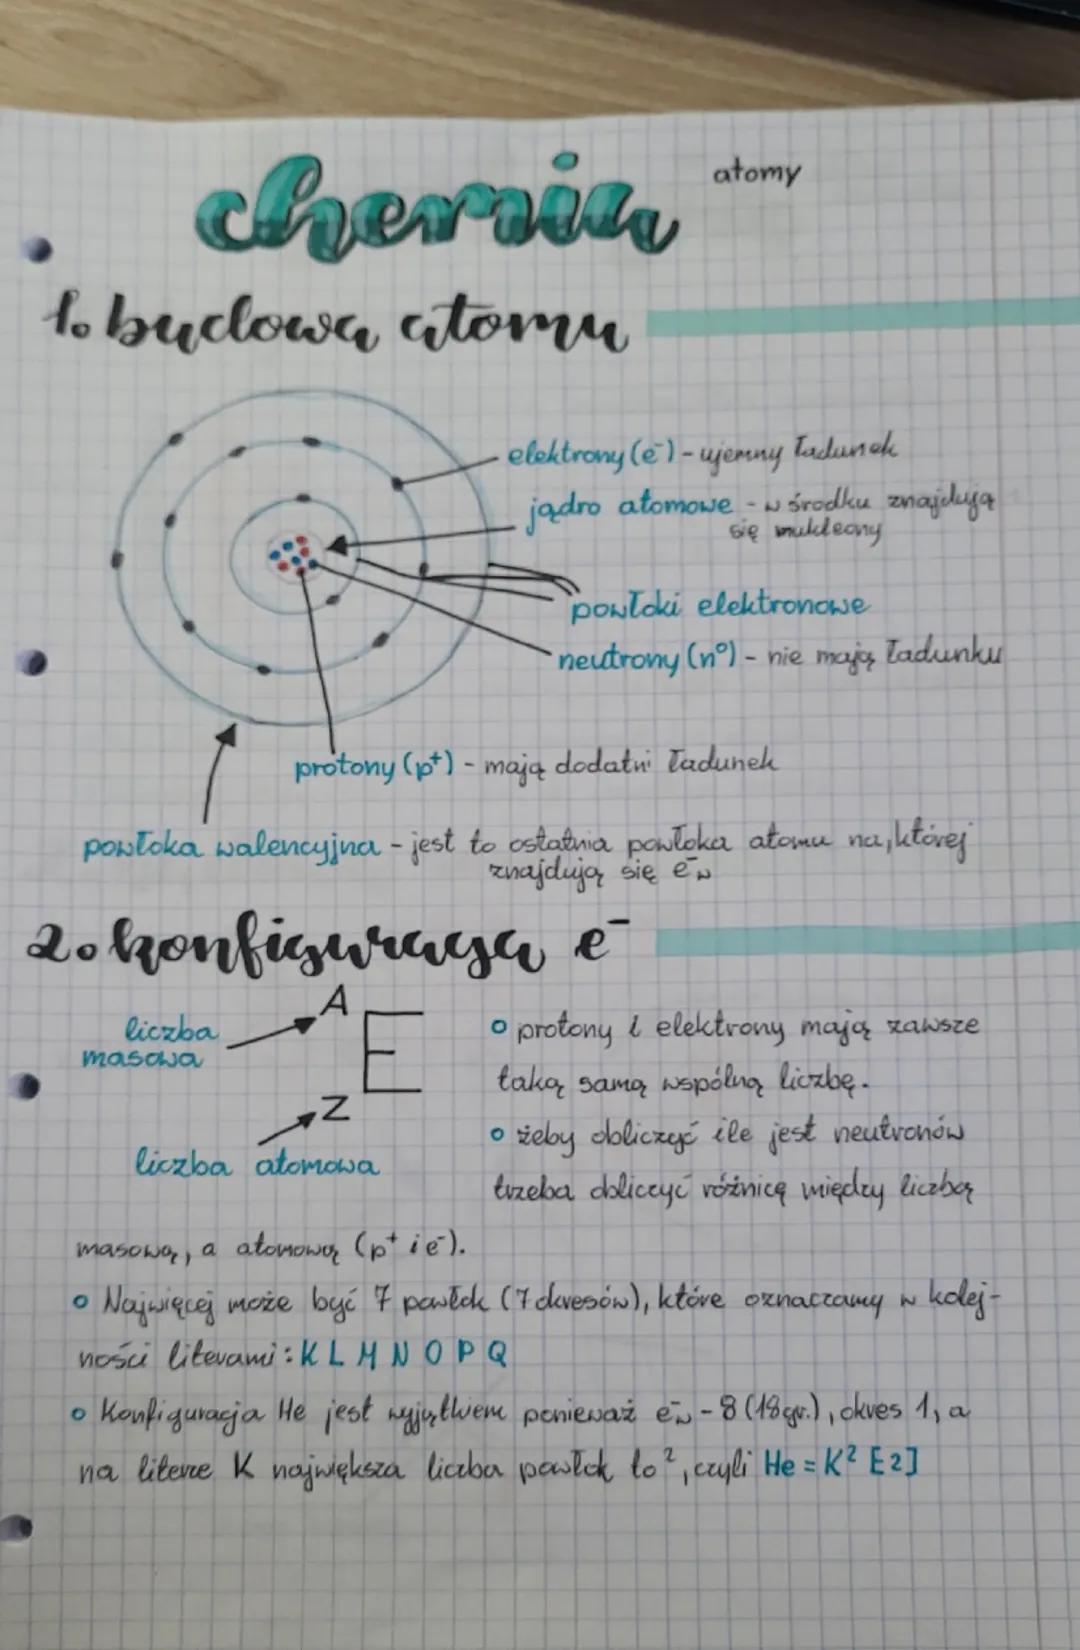 chemia
atomy
1. budowa atomu
elektrony (e⁻) - ujemny ładunek
jądro atomowe - w środku znajdują
się nukleony
powłoki elektronowe
neutrony (n⁰) - nie mają ładunku
protony (p⁺) - mają dodatni ładunek
powłoka walencyjna - jest to ostatnia powłoka atomu na, której
znajdują się e⁻w
2. konfiguracja e⁻
liczba
masowa
A
E
Z
liczba atomowa
o protony i elektrony mają zawsze
taką samą wspólną liczbę.
o żeby obliczyć ile jest neutronów
trzeba obliczyć różnicę między liczbą
masową, a atomową (p⁺ i e⁻).
o Najwięcej może być 7 powłok (7 okresów), które oznaczamy w kolej-
ności literami: K L M N O P Q
o Konfiguracja He jest wyjątkiem ponieważ e⁻w - 8 (18gr.), okres 1, a
na literze K największa liczba powłok to ², czyli He = K² [2]